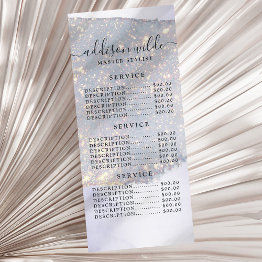 addison wilde
MASTER STYLIST
SERVICE
DESCRIPTION............... $00.00
DESCRIPTION............... $00.00
DESCRIPTION............... $00.00
DESCRIPTION............... $00.00
DESCRIPTION............... $00.00
SERVICE
DESCRIPTION............... $00.00
DESCRIPTION............... $00.00
DESCRIPTION............... $00.00
DESCRIPTION............... $00.00
DESCRIPTION............... $00.00
SERVICE
DESCRIPTION............... $00.00
DESCRIPTION............... $00.00
DESCRIPTION............... $00.00
DESCRIPTION............... $00.00
DESCRIPTION............... $00.00